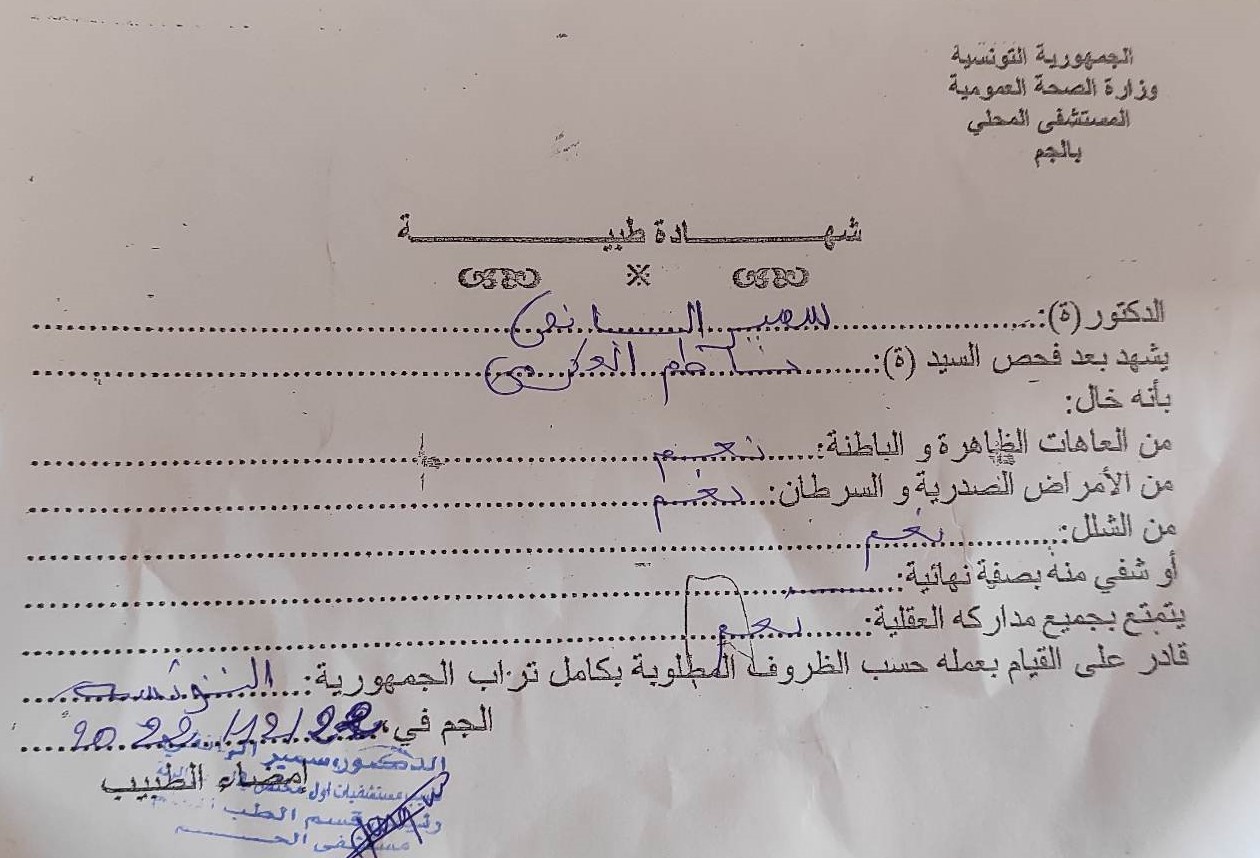 الجمهورية التونسية
وزارة الصحة العمومية
المستشفى المحلي
بالجم
شهـــادة طبيـــة
الدكتور (ة): سمير
يشهد بعد فحص السيد (ة):
بأنه خال:
من العاهات الظاهرة و الباطنة: نعم
من الأمراض الصدرية و السرطان: نعم
من الشلل: نعم
أو شفي منه بصفة نهائية:
يتمتع بجميع مداركه العقلية: نعم
قادر على القيام بعمله حسب الظروف المطلوبة بكامل تراب الجمهورية:
الجم في 2022/12/22
إمضاء الطبيب
الدكتور سمير
قسم الطب
مستشفى الجم